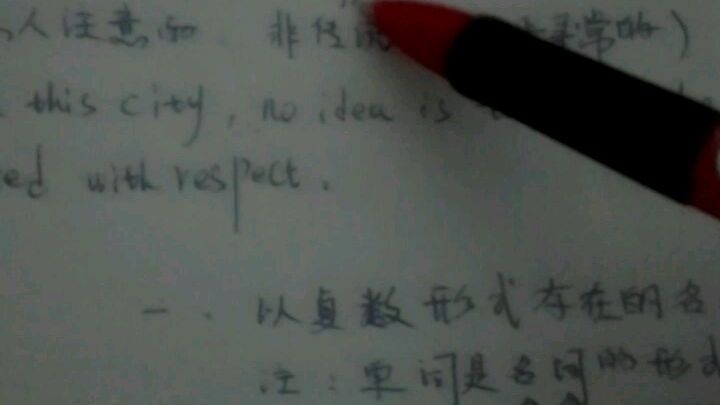 人注意的 非传 寻常的)
this city, no idea is
ed with respect.
一. 以复数形式存在的名
注:单词是名词的形式